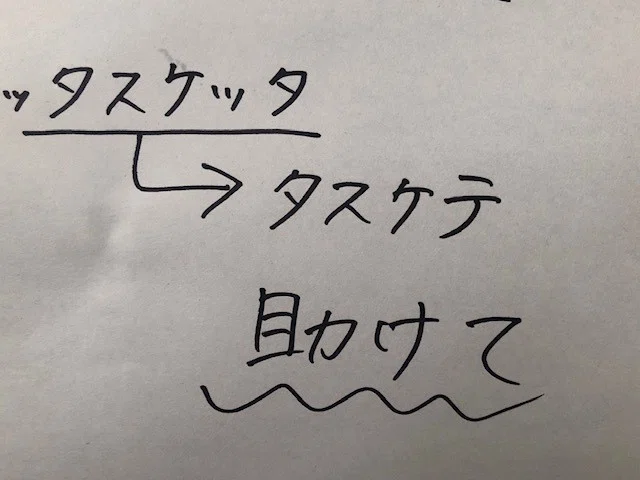 ッタスケッタ
タスケテ
助けて